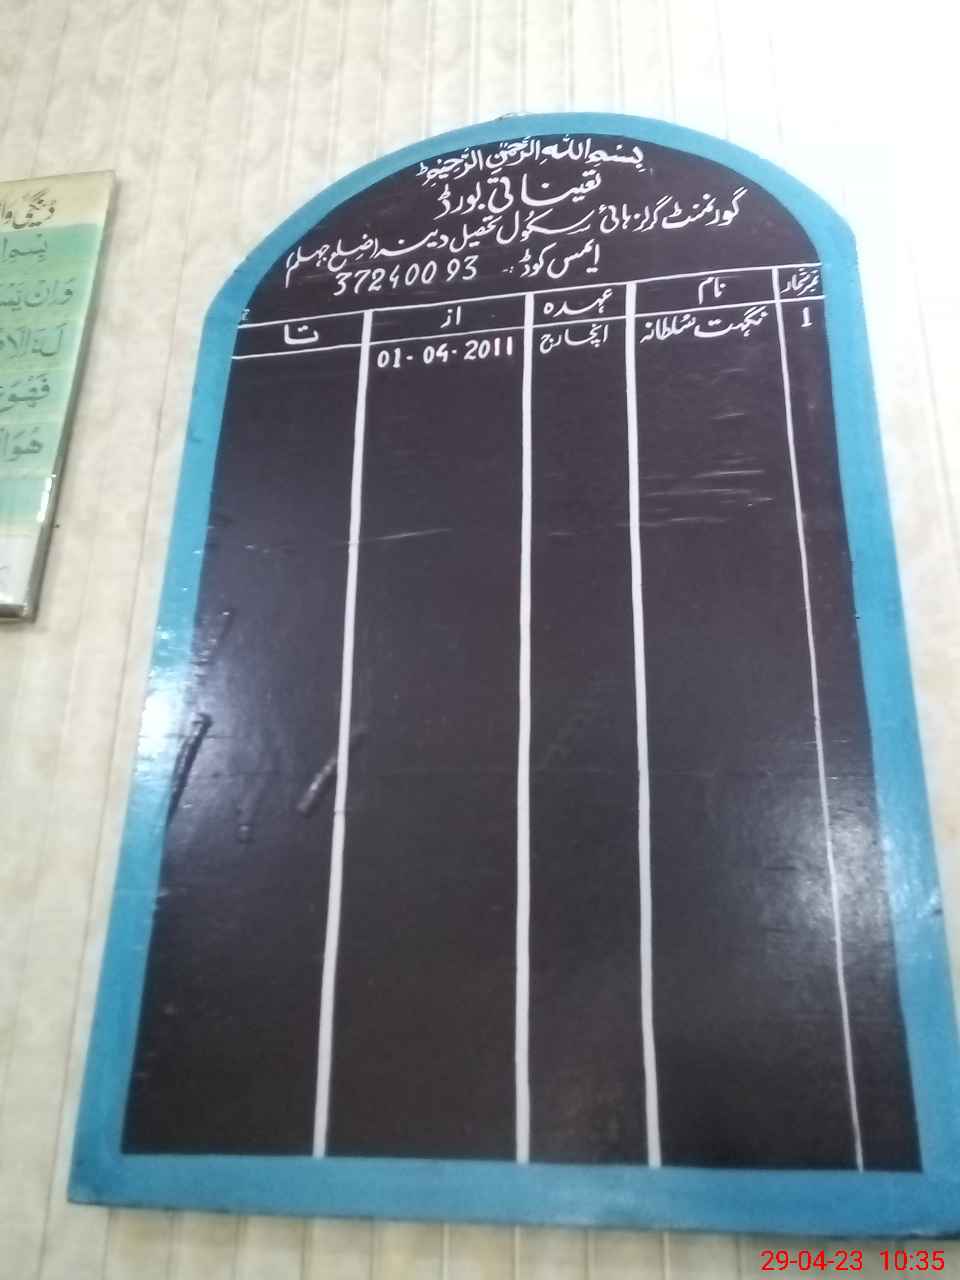 بسم اللہ الرحمٰن الرحیم
تعیناتی بورڈ
گورنمنٹ گرلز ہائی سکول تحصیل دینہ (ضلع جہلم)
ایمس کوڈ: 37240093
نمبر شمار نام عہدہ از تا
1 نگہت سلطانہ انچارج 01-04-2011
بسم ا
وَاِنْ یَّمْسَ
فَھُوَ
ھُوَا
29-04-23 10:35